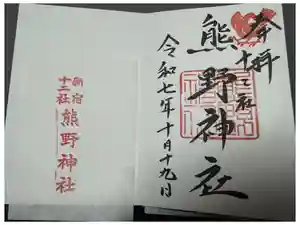 奉拝
十二社
熊野神社
令和七年十月十九日
新宿
十二社
熊野神社